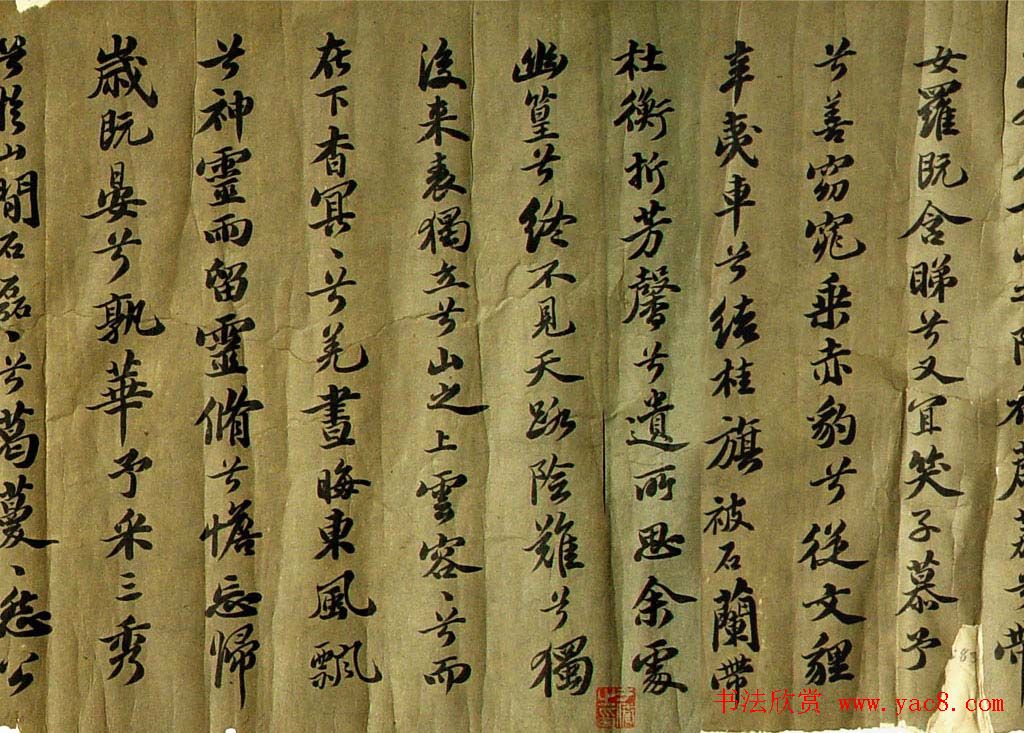 女羅既含睇兮又宜笑子慕予
兮善窈窕乘赤豹兮從文貍
辛夷車兮結桂旗被石蘭帶
杜衡折芳馨兮遺所思余處
幽篁兮終不見天路險難兮獨
後來表獨立兮山之上雲容〻兮而
在下杳冥〻兮羌晝晦東風飄
兮神靈雨留靈脩兮憺忘歸
歲既晏兮孰華予采三秀
兮於山間石磊〻兮葛蔓〻怨公
书法欣赏 www.yac8.com